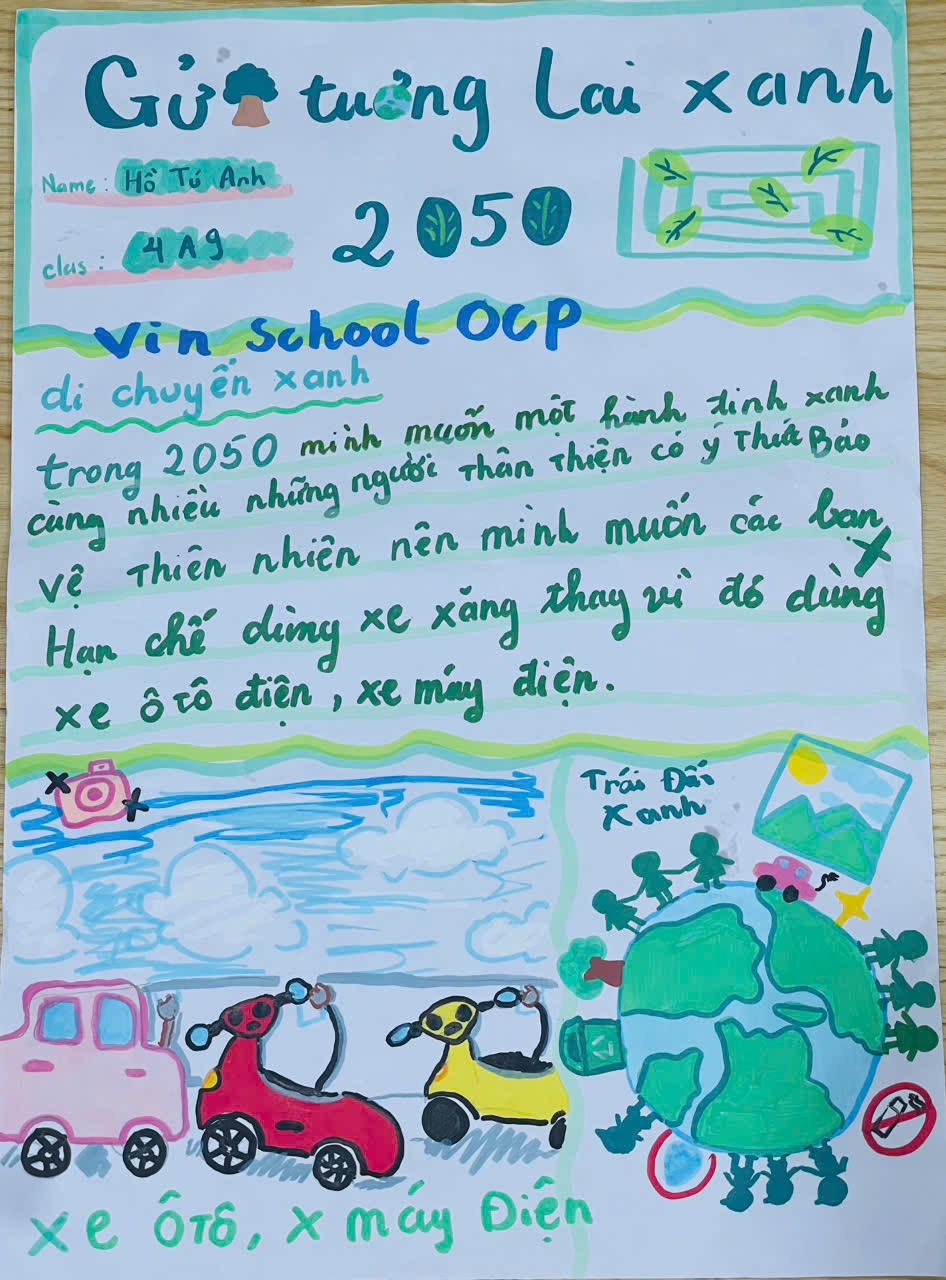 Gửi tương lai xanh
Name: Hồ Tú Anh
2050
clas: 4A9
Vin School OCP
di chuyển xanh
trong 2050 mình muốn một hành tinh xanh
cùng nhiều những người thân thiện có ý thức Bảo
vệ thiên nhiên nên mình muốn các bạn
Hạn chế dùng xe xăng thay vì đó dùng
xe ô tô điện, xe máy điện.
Trái Đất
Xanh
xe ô tô, x máy Điện